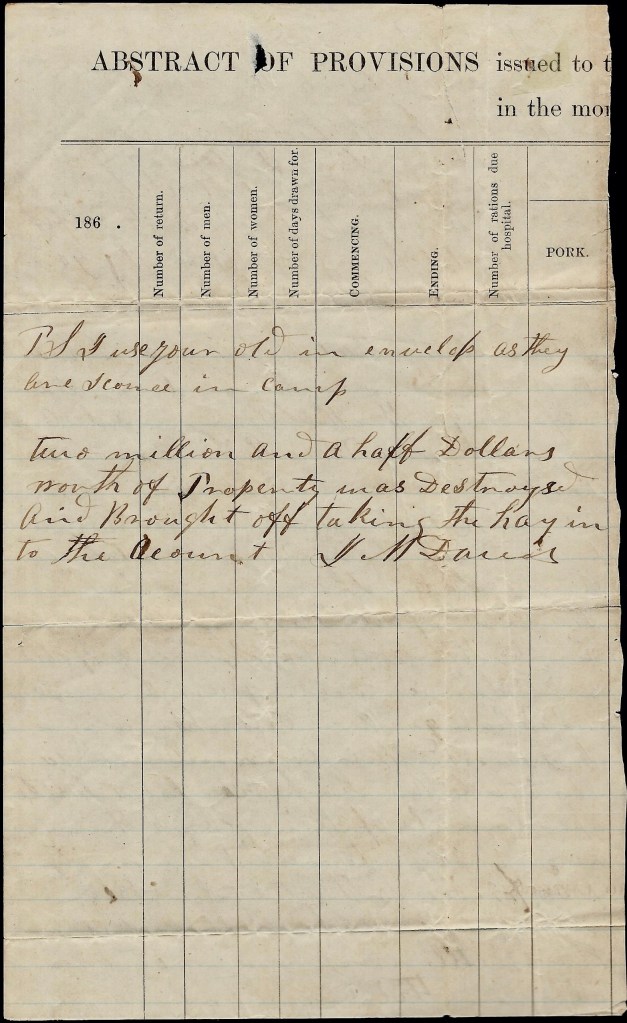 ABSTRACT OF PROVISIONS issued to t
in the mon
186 .
Number of return.
Number of men.
Number of women.
Number of days drawn for.
COMMENCING.
ENDING.
Number of rations due hospital.
PORK.
PS I use your old in envelop as they
are scarce in camp
two million and a haff Dollars
worth of Property was Destroysd
and Brought off taking the hay in
to the acount J M Davis